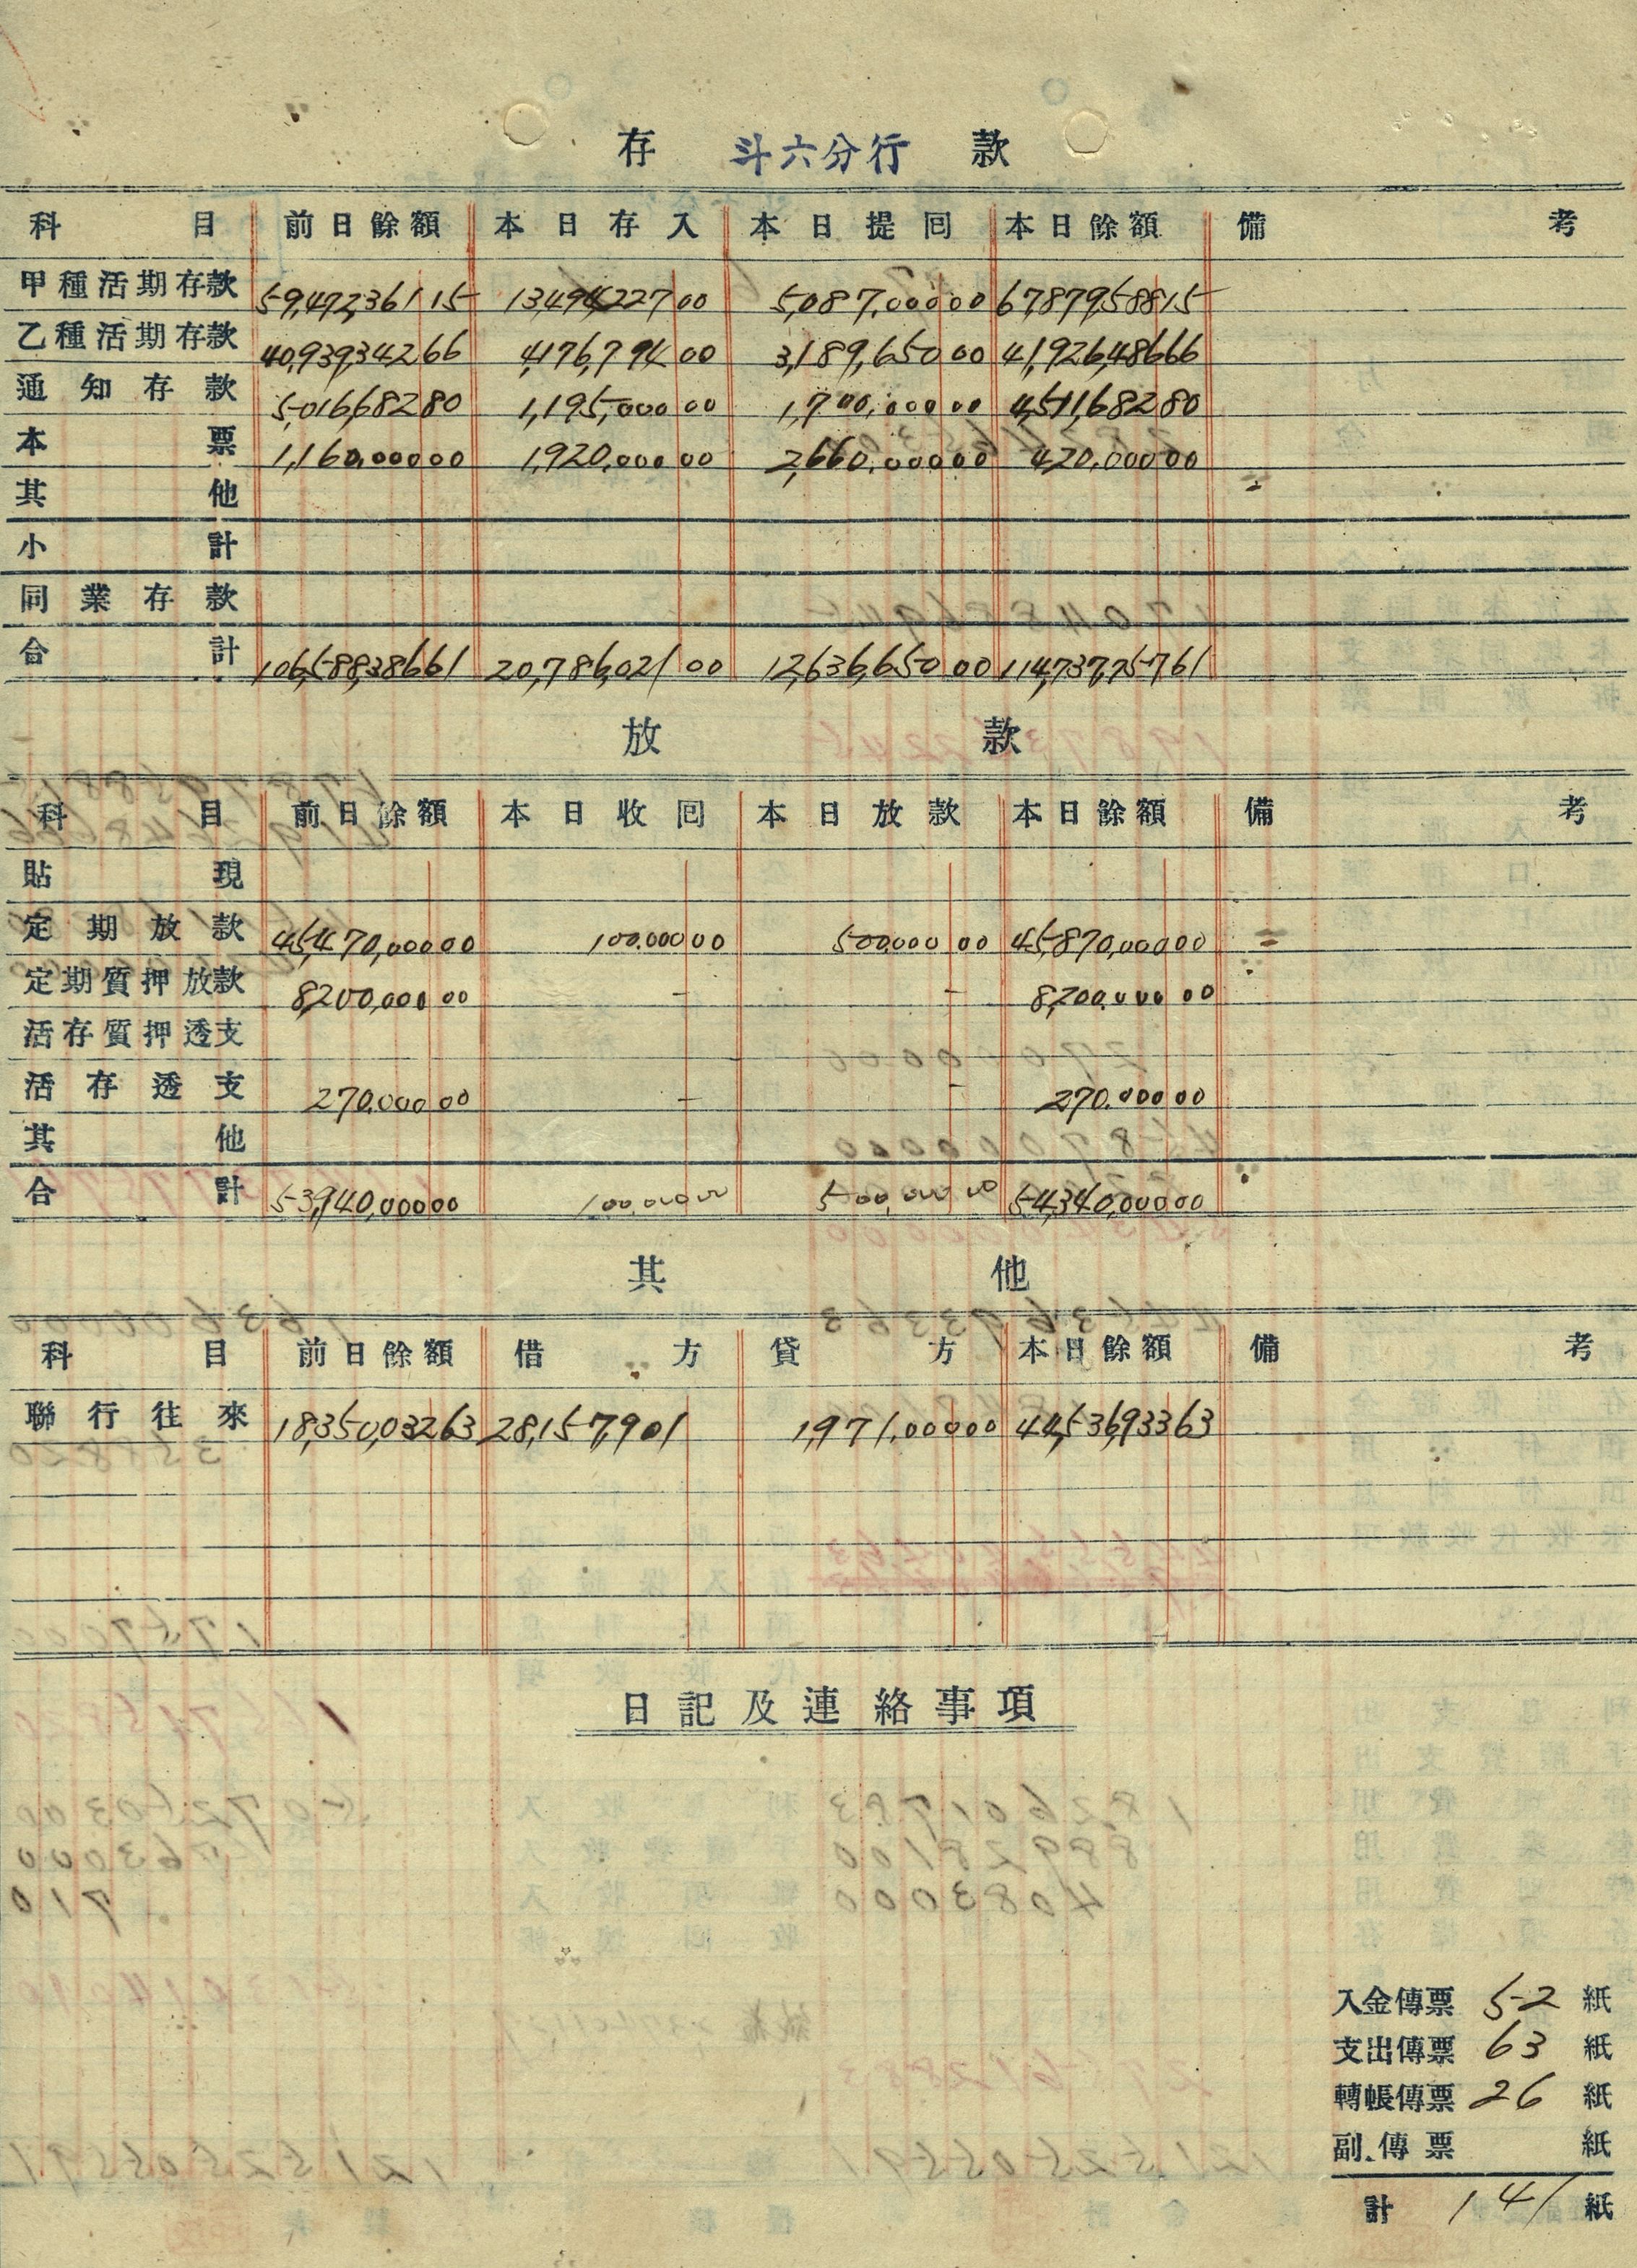 存 斗六分行 款
科目 前日餘額 本日存入 本日提回 本日餘額 備考
甲種活期存款 59,472,361 15 13,494,227 00 5,087,000 00 67,879,588 15
乙種活期存款 40,939,342 66 4,176,794 00 3,189,650 00 41,926,486 66
通知存款 5,016,682 80 1,195,000 00 1,700,000 00 4,511,682 80
本票 1,160,000 00 1,920,000 00 2,660,000 00 420,000 00
其他
小計
同業存款
合計 106,588,386 61 20,786,021 00 12,636,650 00 114,737,757 61
放款
科目 前日餘額 本日收回 本日放款 本日餘額 備考
貼現
定期放款 45,470,000 00 100,000 00 500,000 00 45,870,000 00
定期質押放款 8,200,000 00 - - 8,200,000 00
活存質押透支
活存透支 270,000 00 - - 270,000 00
其他
合計 53,940,000 00 100,000 00 500,000 00 54,340,000 00
其他
科目 前日餘額 借方 貸方 本日餘額 備考
聯行往來 18,350,032 63 28,157,901 1,971,000 00 44,536,933 63
日記及連絡事項
入金傳票 52 紙
支出傳票 63 紙
轉帳傳票 26 紙
副傳票 紙
計 141 紙